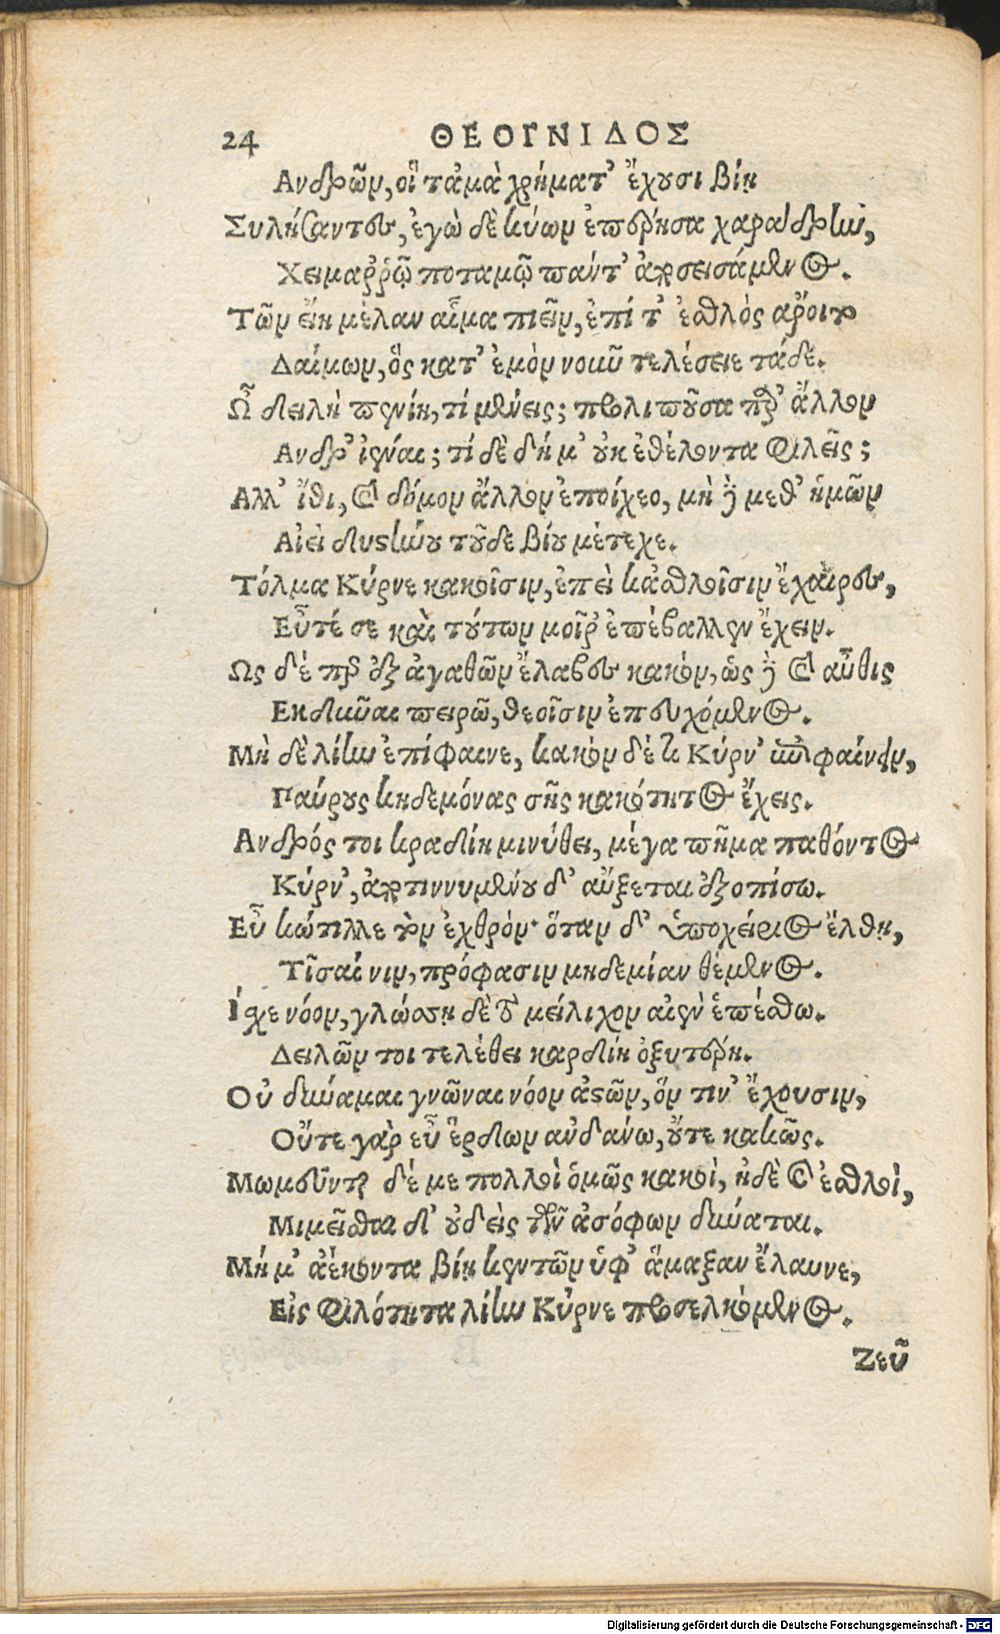 24 ΘΕΟΓΝΙΔΟΣ
Ανδρῶν, οἳ τἀμὰ χρήματ' ἔχουσι βίῃ
Συλήσαντες, ἐγὼ δὲ κύων ἐπέρησα χαράδρην,
Χειμάρρῳ ποταμῷ πάντ' ἀποσεισάμενος.
Τῶν εἴη μέλαν αἷμα πιεῖν, ἐπί τ' ἐσθλὸς ὄροιτο
Δαίμων, ὃς κατ' ἐμὸν νοῦν τελέσειε τάδε.
Ὦ δειλὴ πενίη, τί μένεις; προλιποῦσα παρ' ἄλλον
Ανδρ' ἰέναι; τί δὲ δή μ' οὐκ ἐθέλοντα φιλεῖς;
Αλλ' ἴθι, καὶ δόμον ἄλλον ἐποίχεο, μὴ δὲ μεθ' ἡμῶν
Αἰεὶ δυστήνου τοῦδε βίου μέτεχε.
Τόλμα Κύρνε κακοῖσιν, ἐπεὶ κἀσθλοῖσιν ἔχαιρες,
Εὖτέ σε καὶ τούτων μοῖρ' ἐπέβαλλεν ἔχειν.
Ως δέ περ ἐξ ἀγαθῶν ἔλαβες κακόν, ὣς δὲ καὶ αὖθις
Εκδῦναι πειρῶ, θεοῖσιν ἐπευχόμενος.
Μὴ δὲ λίην ἐπίφαινε, κακὸν δέ τε Κύρν' ὑποφαίνειν,
Παύρους κηδεμόνας σῆς κακότητος ἔχεις.
Ανδρός τοι κραδίη μινύθει, μέγα πῆμα παθόντος
Κύρν', ἀποτιννυμένου δ' αὔξεται ἐξοπίσω.
Εὖ κώτιλλε τὸν ἐχθρόν· ὅταν δ' ὑποχείριος ἔλθῃ,
Τῖσαί νιν, πρόφασιν μηδεμίαν θέμενος.
Ἴσχε νόον, γλώσσῃ δὲ τὸ μείλιχον αἰὲν ἐπέσθω.
Δειλῶν τοι τελέθει καρδίη ὀξυτέρη.
Οὐ δύναμαι γνῶναι νόον ἀστῶν, ὅν τιν' ἔχουσιν,
Οὔτε γὰρ εὖ ἕρδων ἁνδάνω, οὔτε κακῶς.
Μωμεῦνται δέ με πολλοὶ ὁμῶς κακοὶ, ἠδὲ καὶ ἐσθλοὶ,
Μιμεῖσθαι δ' οὐδεὶς τῶν ἀσόφων δύναται.
Μή μ' ἀέκοντα βίῃ κεντῶν ὑφ' ἅμαξαν ἔλαυνε,
Εἰς φιλότητα λίην Κύρνε προσελκόμενος.
Ζεῦ
Digitalisierung gefördert durch die Deutsche Forschungsgemeinschaft - DFG